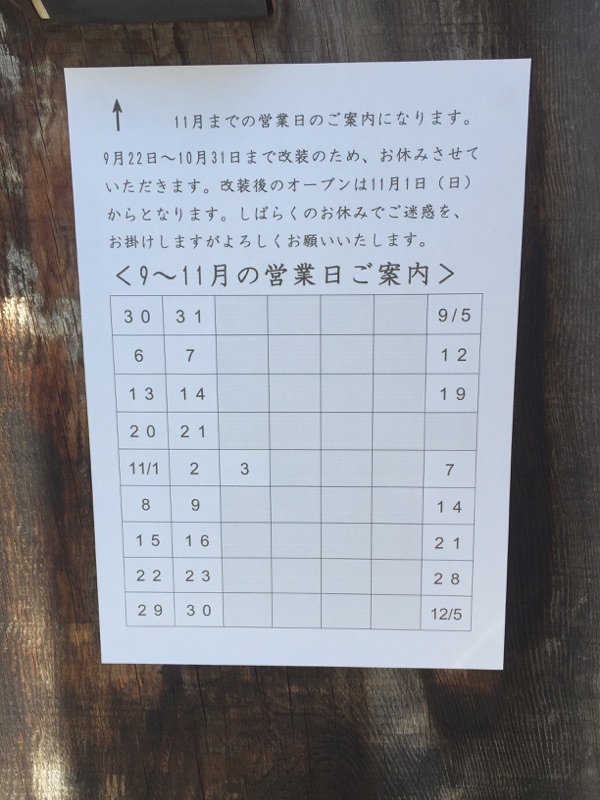 ↑ 11月までの営業日のご案内になります。
9月22日〜10月31日まで改装のため、お休みさせて
いただきます。改装後のオープンは11月1日（日）
からとなります。しばらくのお休みでご迷惑を、
お掛けしますがよろしくお願いいたします。
＜9〜11月の営業日ご案内＞
30 31 9/5
6 7 12
13 14 19
20 21
11/1 2 3 7
8 9 14
15 16 21
22 23 28
29 30 12/5